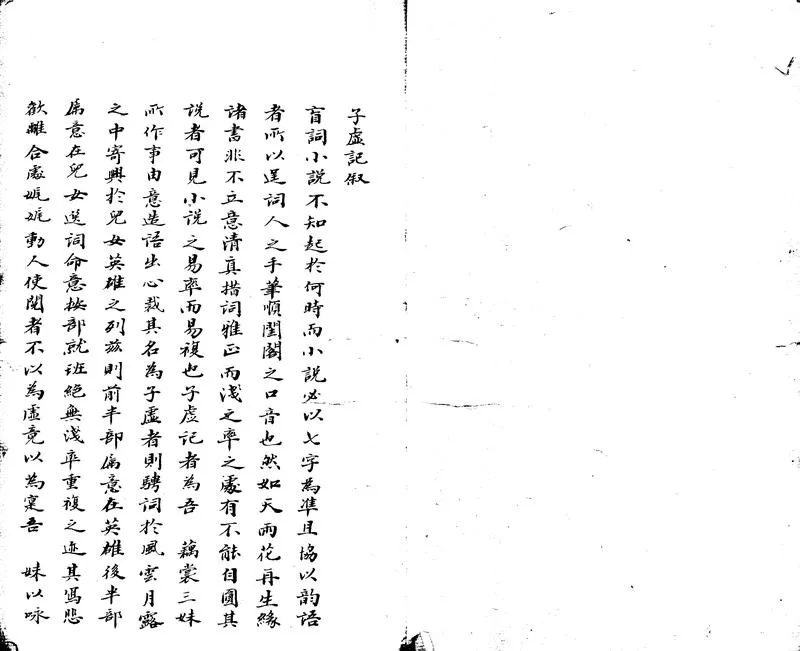 子虛記叙
盲詞小說不知起於何時而小說必以七字為準且協以韵語
者所以逞詞人之手筆順閨閣之口音也然如天雨花再生緣
諸書非不立意清真措詞雅正而淺之率之處有不能自圓其
說者可見小說之易率而易複也子虛記者為吾 藕裳三妹
所作事由意造語出心裁其名為子虛者則騁詞於風雲月露
之中寄興於兒女英雄之列茲則前半部屬意在英雄後半部
屬意在兒女選詞命意按部就班絕無淺率重複之迹其寫悲
歡離合處娓娓動人使閱者不以為虛竟以為寔吾 妹以咏